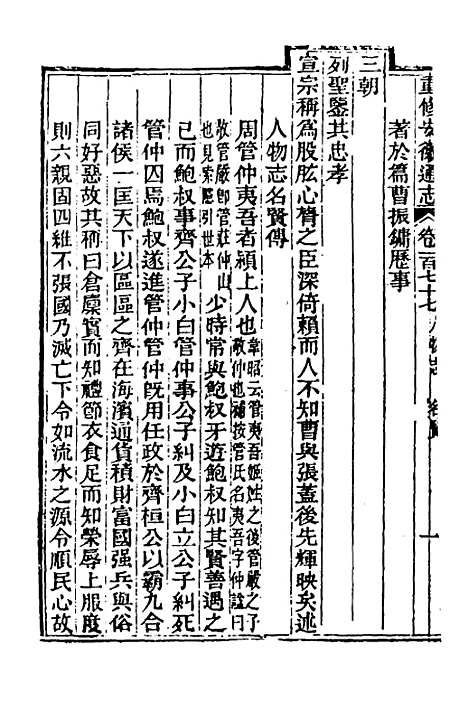 重修安徽通志 卷一百七十七 人物志 名賢 一
著於篇曹振鏞歷事
三朝
列聖鑒其忠孝
宣宗稱爲股肱心膂之臣深倚賴而人不知曹與張蓋後先輝映矣述
人物志名賢傳
周管仲夷吾者潁上人也韋昭云管夷吾姬姓之後管嚴之子敬仲也補按管氏名夷吾字仲諡曰
敬管嚴卽管莊仲山也見索隱引世本少時常與鮑叔牙遊鮑叔知其賢善遇之
已而鮑叔事齊公子小白管仲事公子糾及小白立公子糾死
管仲囚焉鮑叔遂進管仲管仲旣用任政於齊桓公以霸九合
諸侯一匡天下以區區之齊在海濱通貨積財富國强兵與俗
同好惡故其稱曰倉廩實而知禮節衣食足而知榮辱上服度
則六親固四維不張國乃滅亡下令如流水之源令順民心故